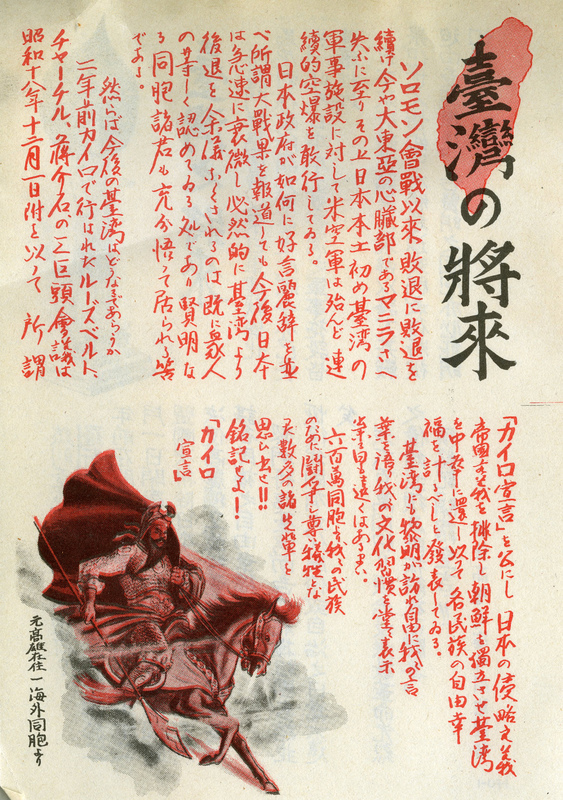 臺灣の將來
ソロモン會戰以來 敗退に敗退を
續け今や大東亞の心臓部であるマニラさへ
失ふに至り その上日本本土初め臺湾の
軍事施設に対して米空軍は殆んど連
續的空爆を敢行してゐる。
日本政府が如何に好言麗辭を並
べ所謂大戰果を報道しても今後日本
は急速に衰微し必然的に臺湾より
後退を余儀なくされるのは既に衆人
の等しく認めてゐる処であり賢明な
る同胞諸君も充分悟って居られる筈
である。
然らば今後の臺湾はどうなるであらうか
二年前カイロで行はれたルーズベルト、
チャーチル、蔣介石の三巨頭會議は
昭和十八年十二月一日附を以って 所謂
「カイロ宣言」を公にし 日本の侵略主義
帝國主義を排除し 朝鮮を獨立させ臺湾
を中華に還し以って各民族の自由幸
福を計るべしと發表してゐる。
臺湾にも黎明が訪れ自由に我々の言
葉を語り我々の文化習慣を堂々表示
日も遠くはあるまい。
六百萬同胞よ我々の民族
のために鬪争し尊い犠牲とな
った数多の諸先輩を
思ひ出せ!!
銘記せよ!
「カイロ
宣言」
元高雄在住一海外同胞より